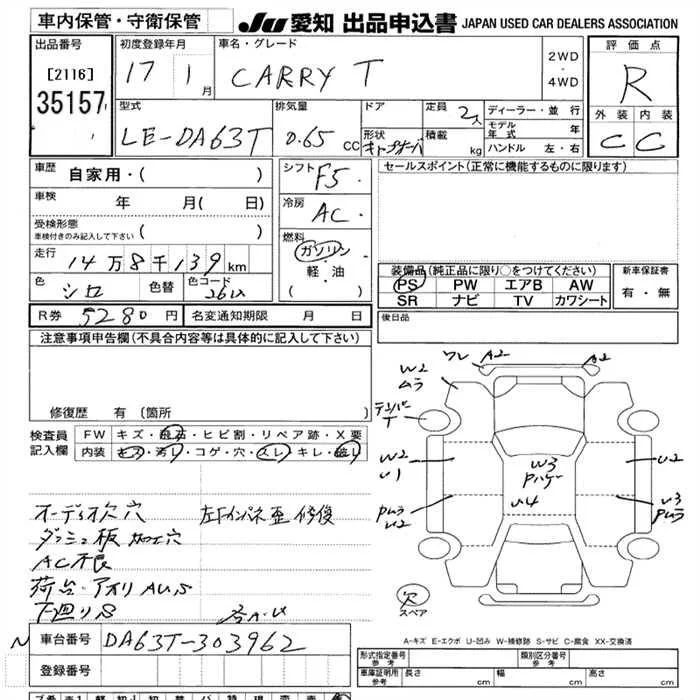 車内保管・守衛保管
JU 愛知 出品申込書 JAPAN USED CAR DEALERS ASSOCIATION
出品番号
[2116]
35157
初度登録年月
17 1月
車名・グレード
CARRY T
2WD
・
4WD
評価点
R
外装 内装
C C
型式
LE-DA63T
排気量
0.65 cc
ドア
形状
定員 2人
積載 kg
ディーラー・並行
モデル年式 年
ハンドル 左・右
車歴 自家用・( )
車検 年 月( 日)
受検形態
車検付きのみ記入して下さい ( )
走行 14万8千139km
色 シロ 色替 色コード 26U
R券 5280円 名変通知期限 月 日
シフト F5
冷房 AC
燃料
ガソリン
・
軽・油
・
( )
セールスポイント(正常に機能するものに限ります)
装備品(純正品に限り○をつけてください)
PS PW エアB AW
SR ナビ TV カワシート
新車保証書
有・無
後日品
注意事項申告欄(不具合内容等は具体的に記入して下さい)
修復歴 有 (箇所 )
検査員記入欄
FW キズ・飛石・ヒビ割・リペア跡・X要
内装 キズ・汚レ・コゲ・穴・スレ・キレ・破レ
オーディオ欠 穴
左Fインパネ歪 修復
ダッシュ板 加工穴
AC不良
荷台・アオリ AUS
下廻りS
W2
ムラ
ワレ
A2
A2
テンパー
T
W2
U1
Pムラ
U2
W3
Pハゲ
U4
U2
U3
Pムラ
欠
スペア
A-キズ E-エクボ U-凹み W-補修跡 S-サビ C-腐食 XX-交換済
N 車台番号 DA63T-303962
登録番号
形式指定番号 参考
類別区分番号 参考
車庫証明用 参考 長さ cm 幅 cm 高さ cm